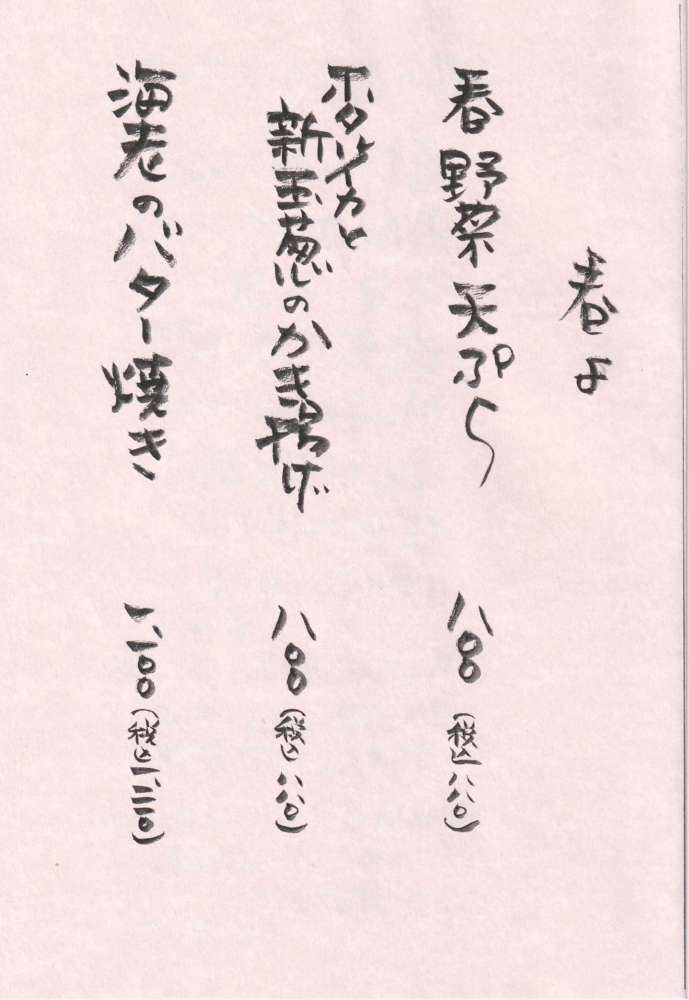 春よ
春野菜天ぷら 八〇〇(税込八八〇)
ホタルイカと
新玉葱のかき揚げ 八〇〇(税込八八〇)
海老のバター焼き 一、一〇〇(税込一、二一〇)